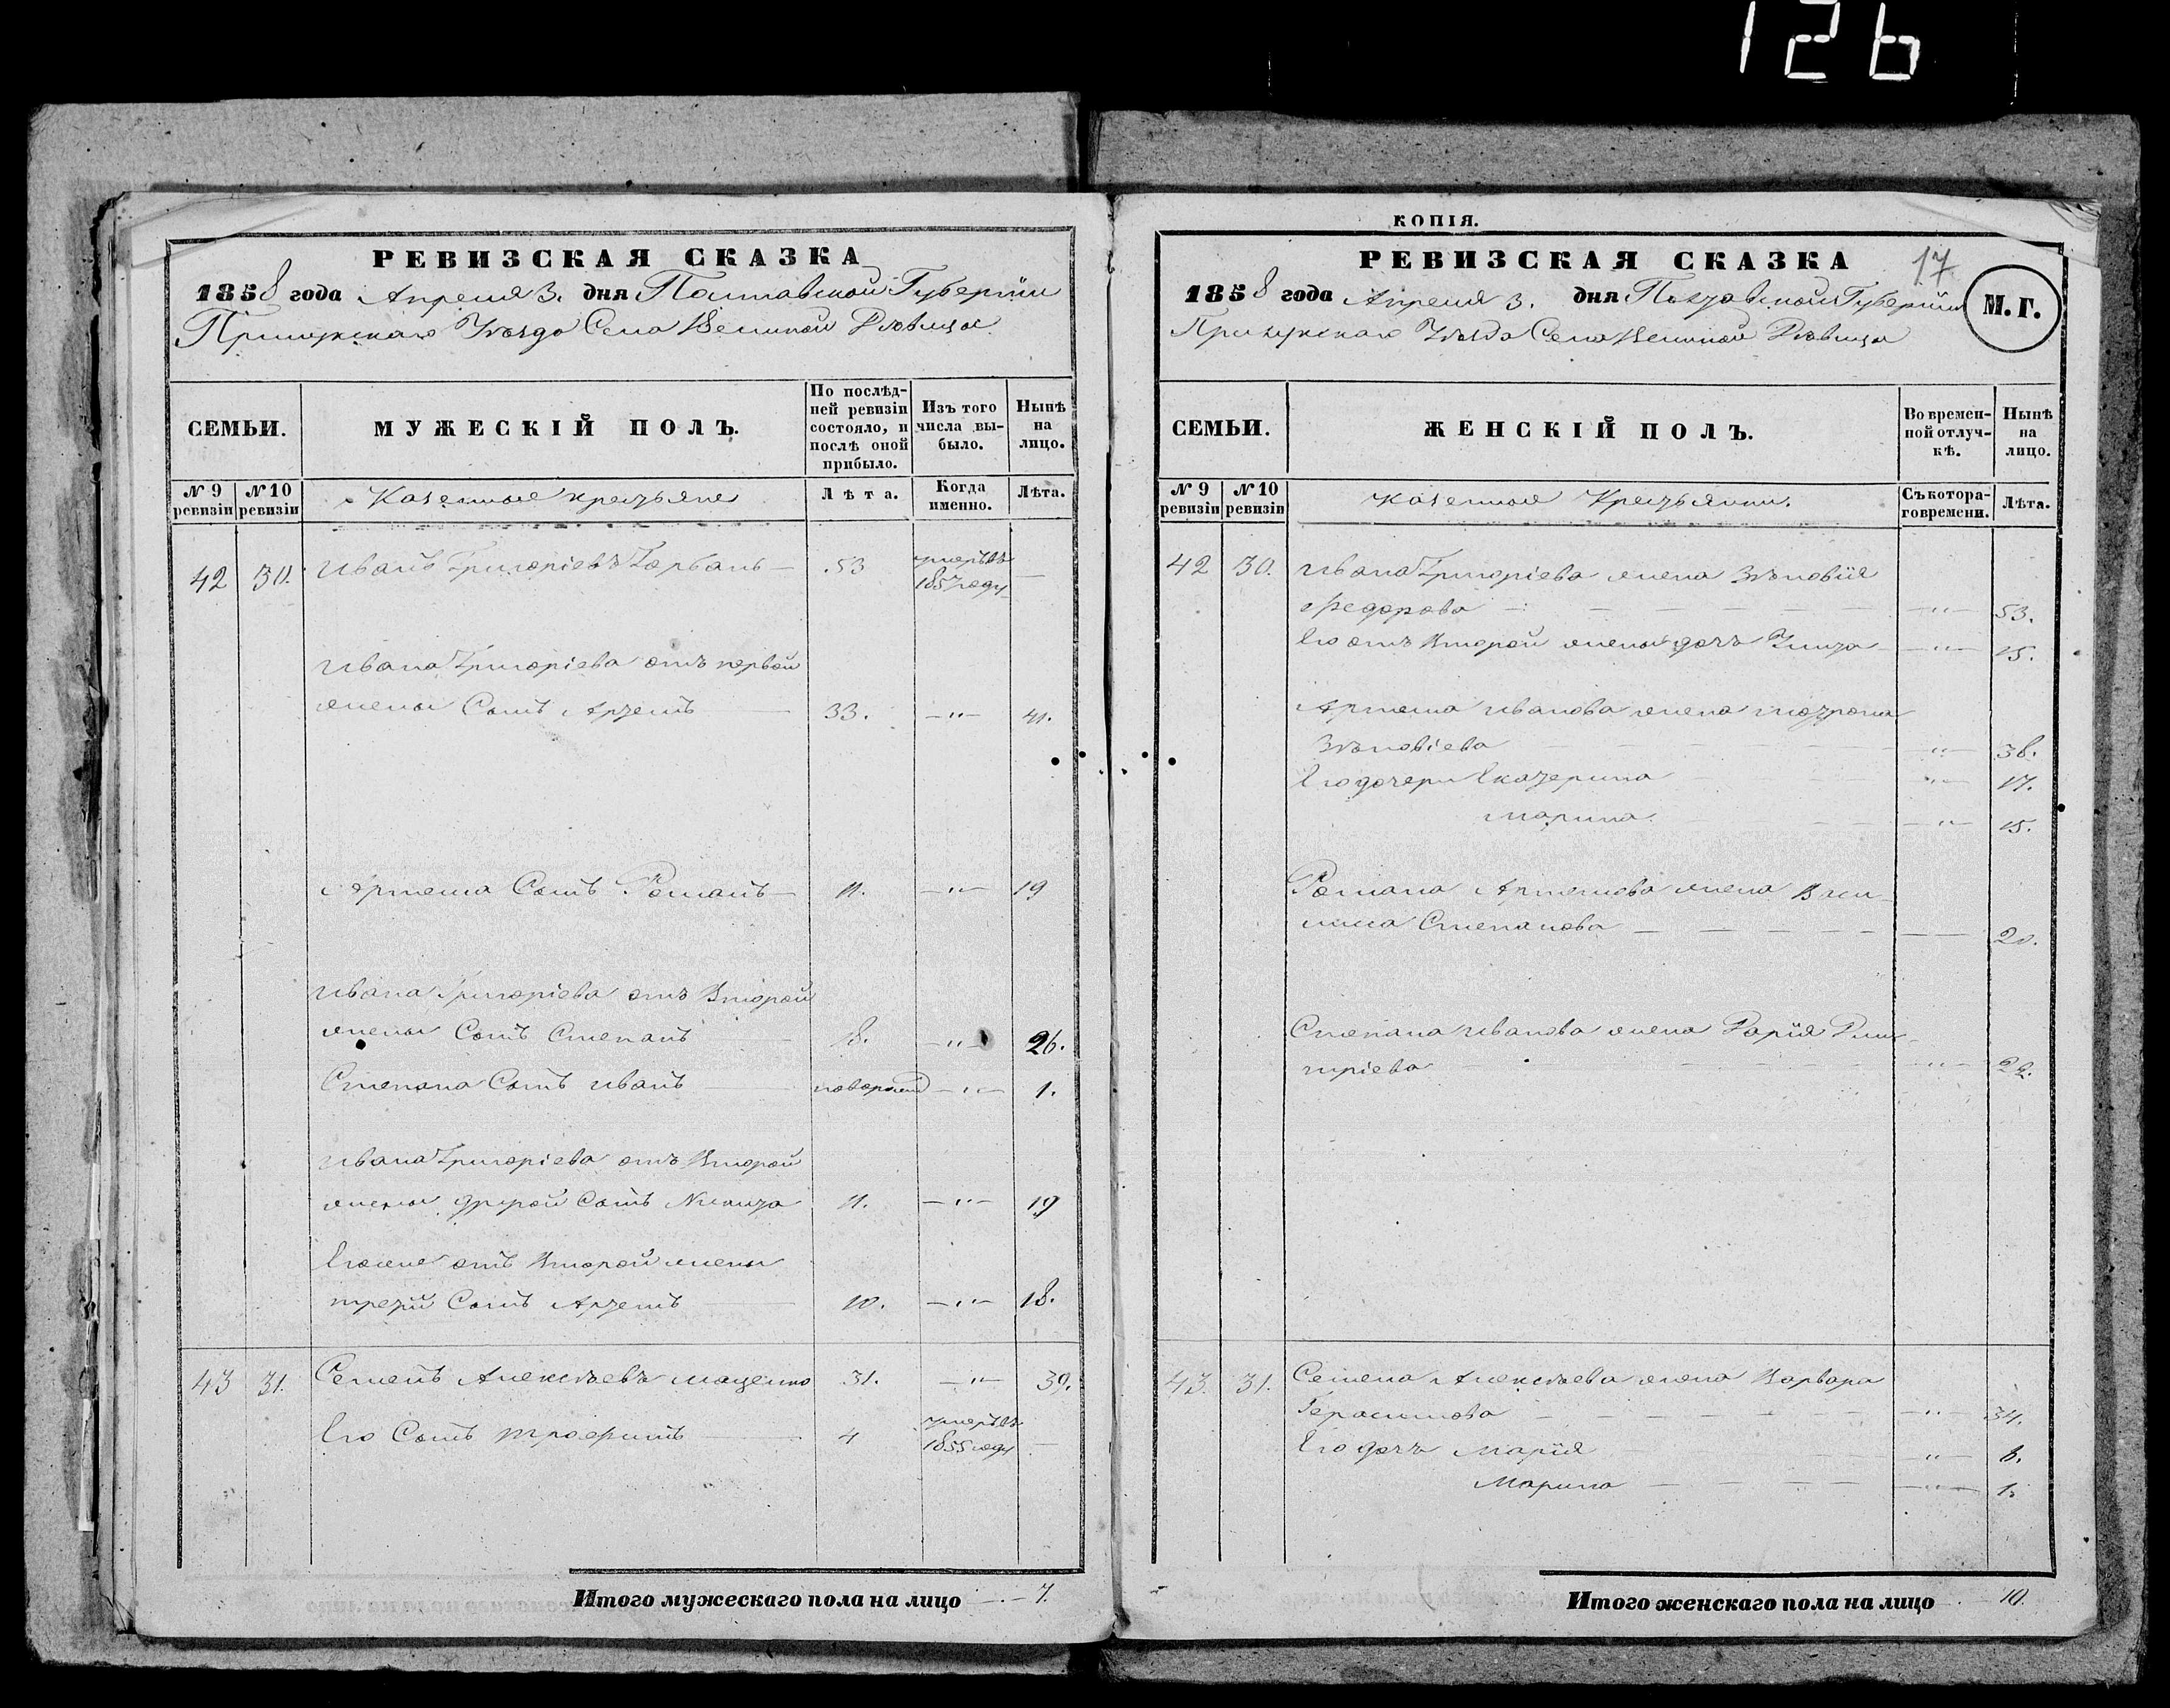 126
РЕВИЗСКАЯ СКАЗКА
1858 года Апреля 3. дня Полтавской Губерніи
Прилукскаго Уѣзда Села Великой Дѣвицы
СЕМЬИ.
МУЖЕСКІЙ ПОЛЪ.
По послѣд-
ней ревизіи
состояло, и
послѣ оной
прибыло.
Изъ того
числа вы-
было.
Нынѣ
на
лицо.
№ 9 ревизіи
№ 10 ревизіи
Казенные крестьяне
Лѣта.
Когда именно.
Лѣта.
42 30. Иванъ Григоріевъ Горбань — 53 умерълъ 1857 году —
Ивана Григоріева отъ первой
жены Сынъ Артемъ 33. —"— 41.
Артема Сынъ Романъ — 11. —"— 19
Ивана Григоріева отъ Второй
жены Сынъ Степанъ 18. —"— 26.
Степана Сынъ Иванъ новорожд —"— 1.
Ивана Григоріева отъ Второй
жены другой Сынъ Никита 11. —"— 19
Его же отъ Второй жены
третій Сынъ Артемъ — 10. —"— 18.
43 31. Семенъ Алексѣевъ Маценко 31. —"— 39.
Его Сынъ Трофимъ — 4 умерълъ 1855 году —
Итого мужескаго пола на лицо — 7.
КОПІЯ.
РЕВИЗСКАЯ СКАЗКА
17
1858 года Апреля 3. дня Полтавской Губерніи
М.Г.
Прилукскаго Уѣзда Села Великой Дѣвицы
СЕМЬИ.
ЖЕНСКІЙ ПОЛЪ.
Во времен-
ной отлуч-
кѣ.
Нынѣ
на
лицо.
№ 9 ревизіи
№ 10 ревизіи
Казенные Крестьянки.
Съ котора-
го времени.
Лѣта.
42 30. Ивана Григоріева жена Зѣновія
Федорова — —"— 53.
Его отъ Второй жены дочь —"— 15.
Артема Иванова жена Матрона
Зѣновіева —"— 38.
Его дочери Екатерина —"— 17.
Марина —"— 15.
Романа Артемова жена Васи-
лиса Степанова — — 20.
Степана Иванова жена Дарія Дми-
тріева —"— 22.
43. 31. Семена Алексѣева жена Варвара
Герасимова — —"— 34.
Его дочь Марія —"— 8.
Марина — —"— 1.
Итого женскаго пола на лицо — 10.